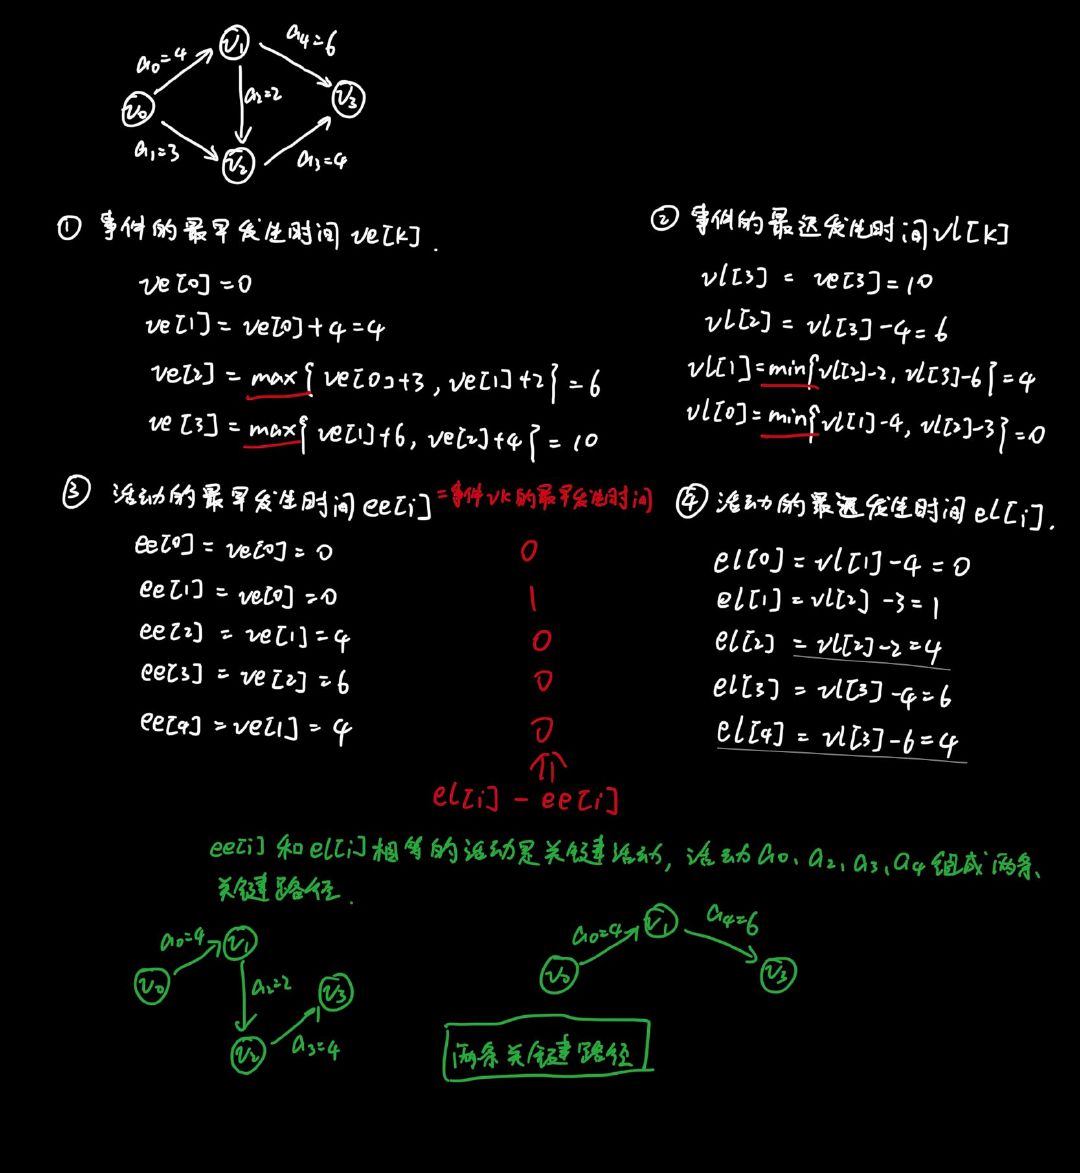 a₀=4
v₁
a₄=6
v₀
a₂=2
v₃
a₁=3
v₂
a₃=4
① 事件的最早发生时间 ve[k].
ve[0]=0
ve[1]=ve[0]+4=4
ve[2]=max{ve[0]+3, ve[1]+2}=6
ve[3]=max{ve[1]+6, ve[2]+4}=10
② 事件的最迟发生时间 vl[k]
vl[3] = ve[3]=10
vl[2]=vl[3]-4=6
vl[1]=min{vl[2]-2, vl[3]-6}=4
vl[0]=min{vl[1]-4, vl[2]-3}=0
③ 活动的最早发生时间 ee[i] =事件vk的最早发生时间
ee[0]=ve[0]=0
ee[1]=ve[0]=0
ee[2]=ve[1]=4
ee[3]=ve[2]=6
ee[4]=ve[1]=4
0
1
0
0
0
el[i]-ee[i]
④ 活动的最迟发生时间 el[i].
el[0]=vl[1]-4=0
el[1]=vl[2]-3=1
el[2]=vl[2]-2=4
el[3]=vl[3]-4=6
el[4]=vl[3]-6=4
ee[i]和el[i]相等的活动是关键活动, 活动a₀、a₂、a₃、a₄组成两条
关键路径.
a₀=4
v₁
v₀
a₂=2
v₃
v₂
a₃=4
a₀=4
v₁
a₄=6
v₀
v₃
两条关键路径